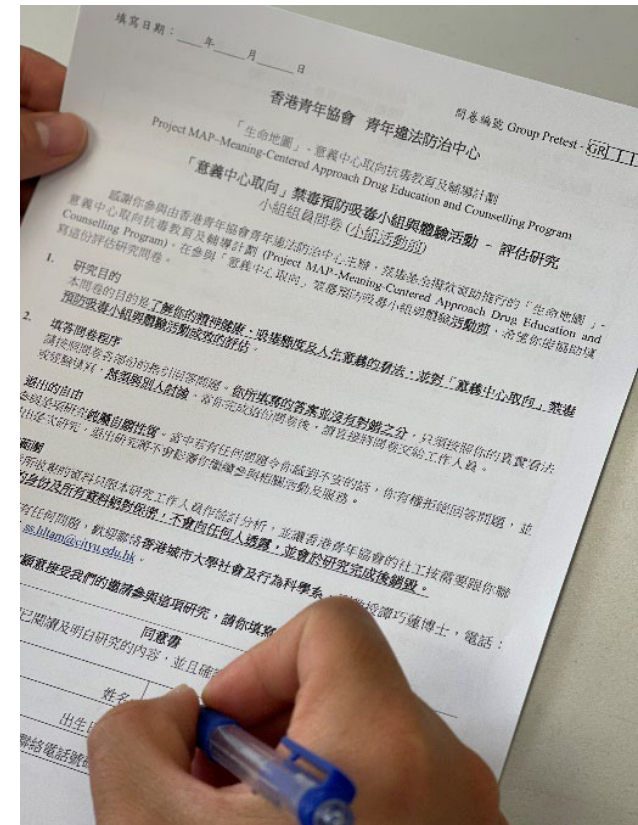 填寫日期：____年____月____日
問卷編號 Group Pretest - GR
香港青年協會 青年違法防治中心
「生命地圖」- 意義中心取向抗毒教育及輔導計劃
Project MAP–Meaning-Centered Approach Drug Education and Counselling Program
「意義中心取向」禁毒預防吸毒小組與體驗活動 - 評估研究
小組組員問卷 (小組活動前)
感謝你參與由香港青年協會青年違法防治中心主辦，禁毒基金撥款資助推行的「生命地圖」-
意義中心取向抗毒教育及輔導計劃 (Project MAP–Meaning-Centered Approach Drug Education and
Counselling Program)。在參與「意義中心取向」禁毒預防吸毒小組與體驗活動前，希望你能協助填
寫這份評估研究問卷。
1. 研究目的
本問卷的目的是了解你的精神健康、吸毒態度及人生意義的看法，並對「意義中心取向」禁毒
預防吸毒小組與體驗活動成效的評估。
2. 填答問卷程序
請按照問卷各部份的指引回答問題。你所填寫的答案並沒有對錯之分，只須按照你的真實看法
或經驗填寫，無須與別人討論。當你完成這份問卷後，請直接將問卷交給工作人員。
退出的自由
參與是項研究純屬自願性質。當中若有任何問題令你感到不安的話，你有權拒絕回答問題，並
退出是次研究。退出研究將不會影響你繼續參與相關活動及服務。
範圍
所收集的資料只限本研究工作人員作統計分析，並讓香港青年協會的社工按需要跟你聯
的身份及所有資料絕對保密，不會向任何人透露，並會於研究完成後銷毀。
有任何問題，歡迎聯絡香港城市大學社會及行為科學系 譚巧蓮博士，電話：
ss.hltam@cityu.edu.hk。
願意接受我們的邀請參與這項研究，請你填寫
同意書
已閱讀及明白研究的內容，並且確
姓名
出生日
聯絡電話號